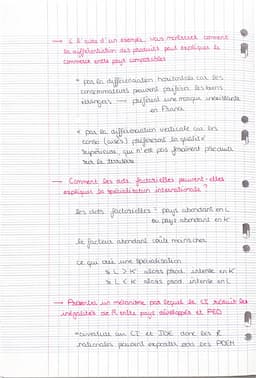 → à l'aide d'un exemple, vous montrerez comment
la différenciation des produits peut expliquer le
commerce entre pays comparables
* par la différenciation horizontale car les
consommateurs peuvent préférer les biens
étrangers → préférant une marque inexistante
en France
* par la différenciation verticale car les
conso (aisés) préfèreront la qualité
supérieure, qui n'est pas forcément produite
sur le territoire
→ Comment les dots factorielles peuvent-elles
expliquer la spécialisation internationale ?
les dots factorielles : pays abondant en L
ou pays abondant en K
le facteur abondant coûte moins cher
ce qui crée une spécialisation
si L > K alors prod intense en K
si L < K alors prod intense en L
→ Présentez un mécanisme par lequel le CI réduit les
inégalités de R entre pays développés et PED
* ouverture au CI et IDE donc les R
nationales peuvent exporter des PDEM